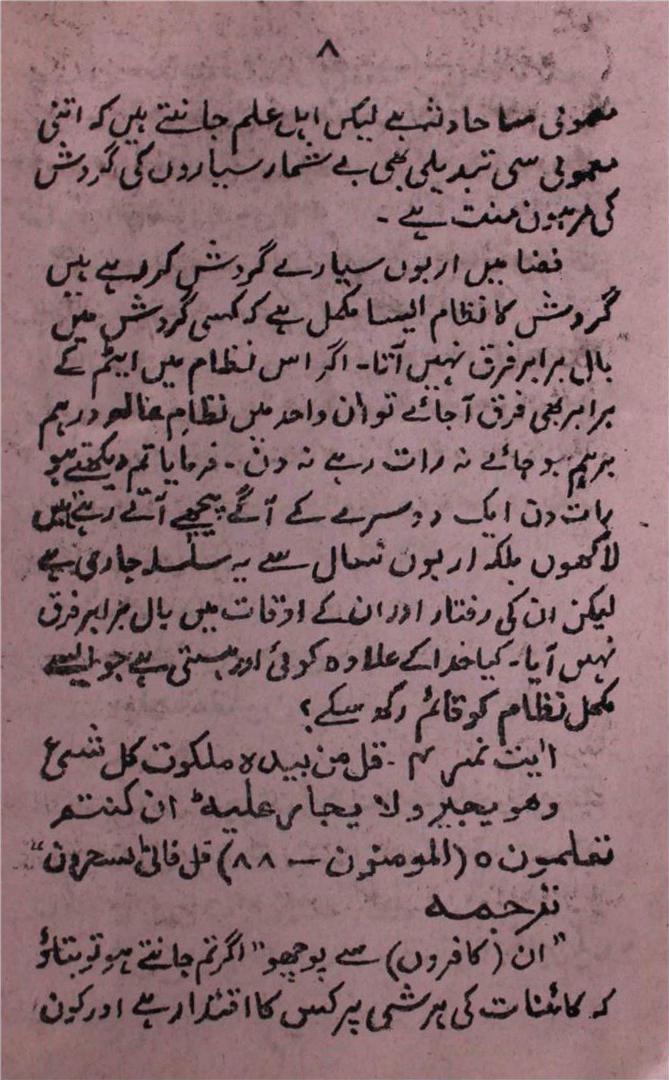 ۸
معمولی سا حادثہ ہے لیکن اہل علم جانتے ہیں کہ اتنی
معمولی سی تبدیلی بھی بے شمار سیاروں کی گردش
کی مرہون منت ہے ۔
فضا میں اربوں سیارے گردش کر رہے ہیں
گردش کا نظام ایسا مکمل ہے کہ کسی گردش میں
بال برابر فرق نہیں آتا۔ اگر اس نظام میں ایٹم کے
برابر بھی فرق آجائے تو آن واحد میں نظامِ عالم درہم
برہم ہو جائے نہ رات رہے نہ دن ۔ فرمایا تم دیکھتے ہو
رات دن ایک دوسرے کے آگے پیچھے آتے رہتے ہیں
لاکھوں بلکہ اربوں سال سے یہ سلسلہ جاری ہے
لیکن ان کی رفتار اور ان کے اوقات میں بال برابر فرق
نہیں آیا۔ کیا خدا کے علاوہ کوئی اور ہستی ہے جو ایسے
مکمل نظام کو قائم رکھ سکے ؟
آیت نمبر ۴ ۔ قل من بیدہ ملکوت کل شیئ
وھو یجیر ولا یجار علیہ ط ان کنتم
تعلمون ہ (المومنون – ۸۸) قل فانیٰ تسحرون“
ترجمہ
”ان (کافروں) سے پوچھو” اگر تم جانتے ہو تو بتاؤ
کہ کائنات کی ہر شئی پر کس کا اقتدار ہے اور کون